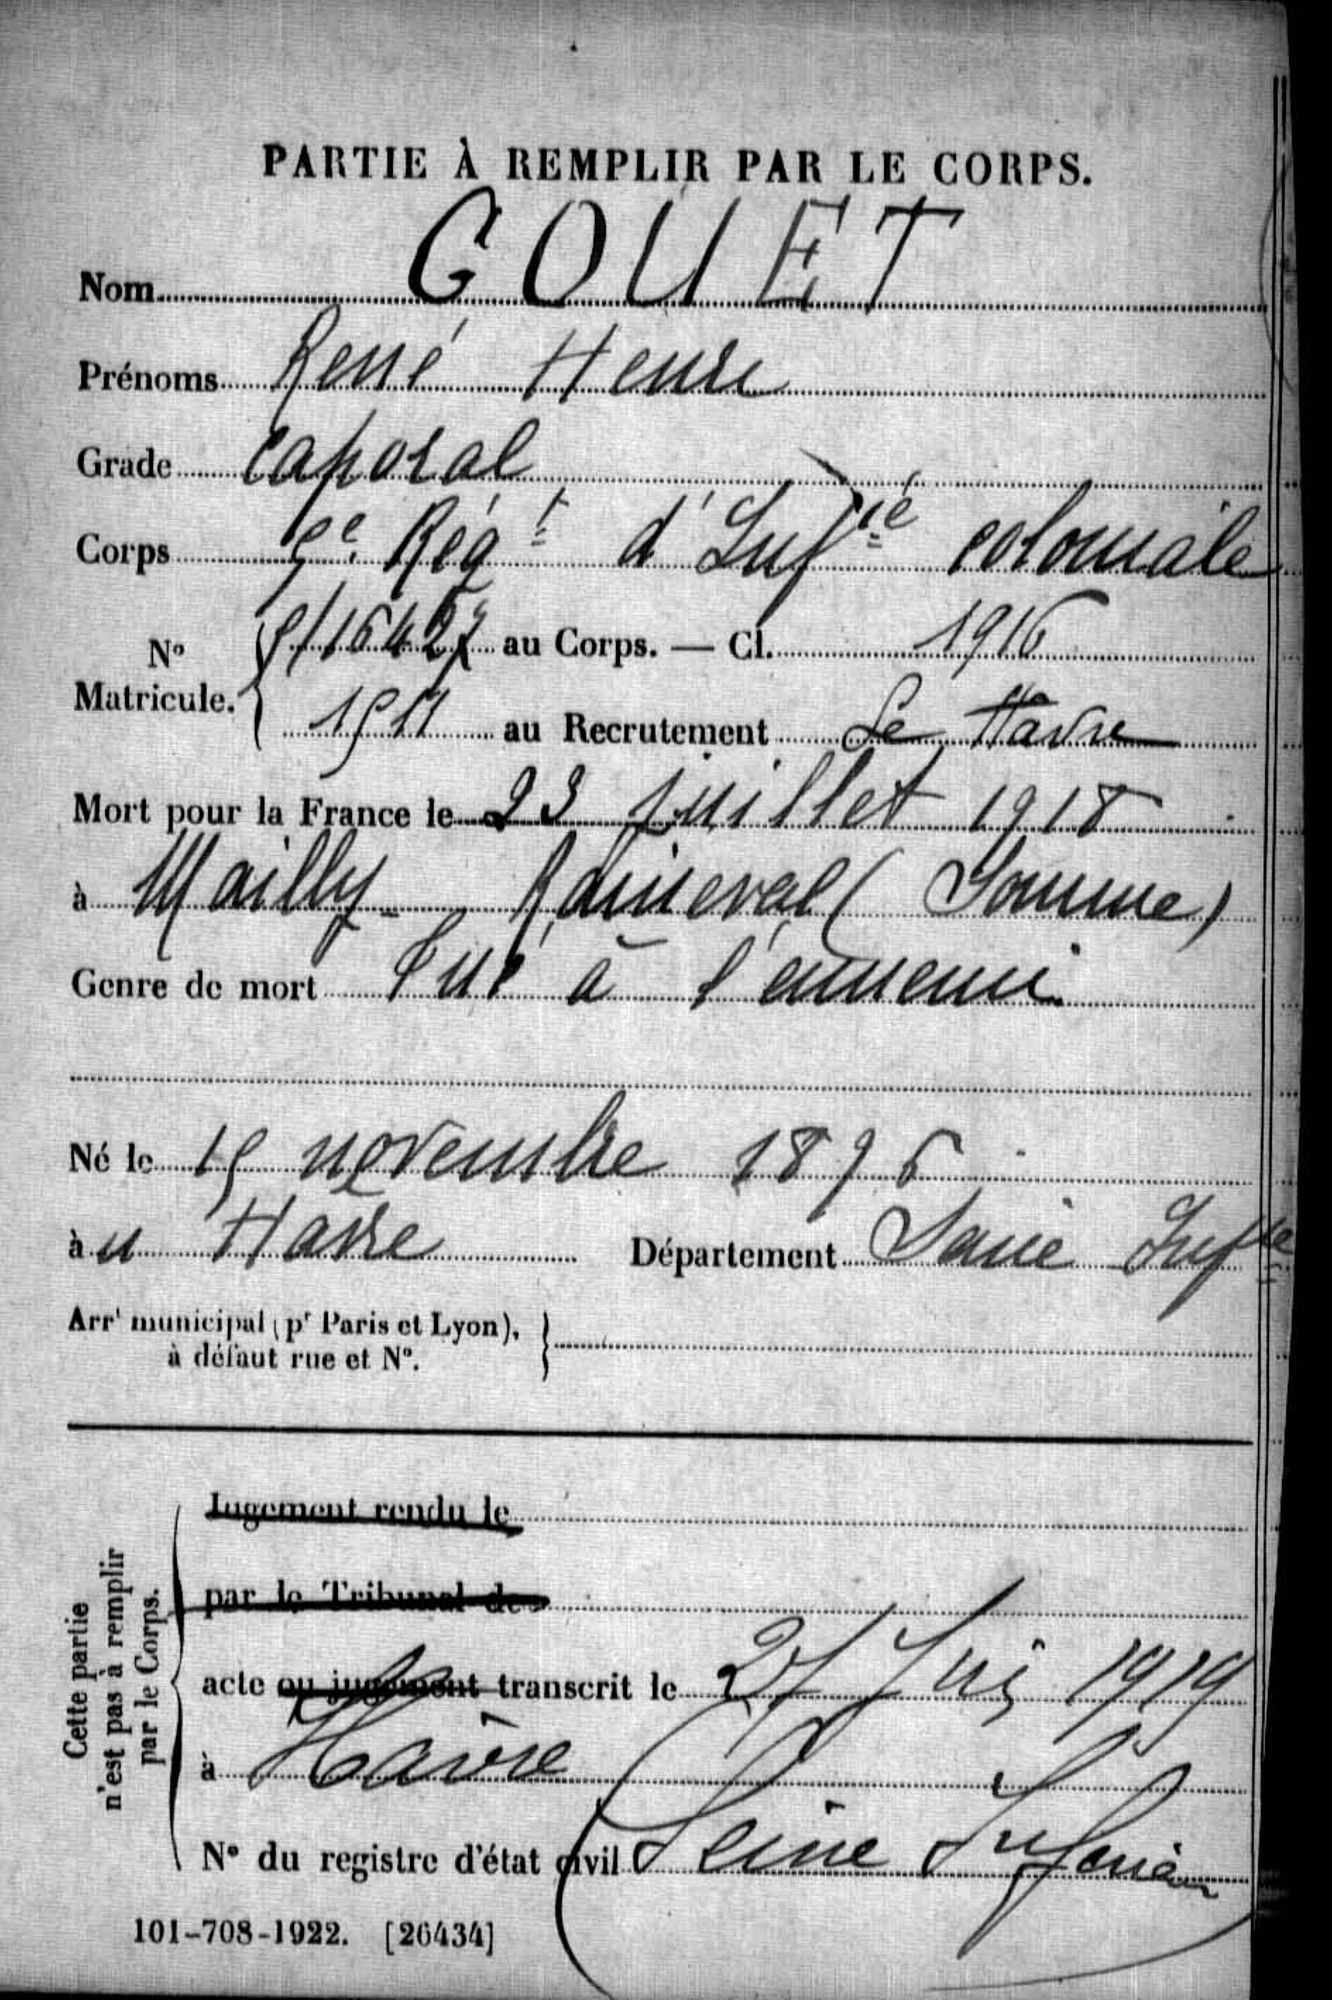 PARTIE À REMPLIR PAR LE CORPS.
Nom GOUET
Prénoms René Henri
Grade Caporal
Corps 5e Régt d'Infie coloniale
No Matricule. au Corps. — Cl. 1916
au Recrutement Le Havre
Mort pour la France le 23 juillet 1918
à Mailly-Raineval (Somme)
Genre de mort Tué à l'ennemi
Né le 15 novembre 1896
à u Havre Département Seine Infre
Arrt municipal (pr Paris et Lyon),
à défaut rue et No.
Cette partie
n'est pas à remplir
par le Corps.
Jugement rendu le
par le Tribunal de
acte ou jugement transcrit le 27 Juin 1919
à Havre
No du registre d'état civil (Seine Inférieure
101-708-1922. [26434]